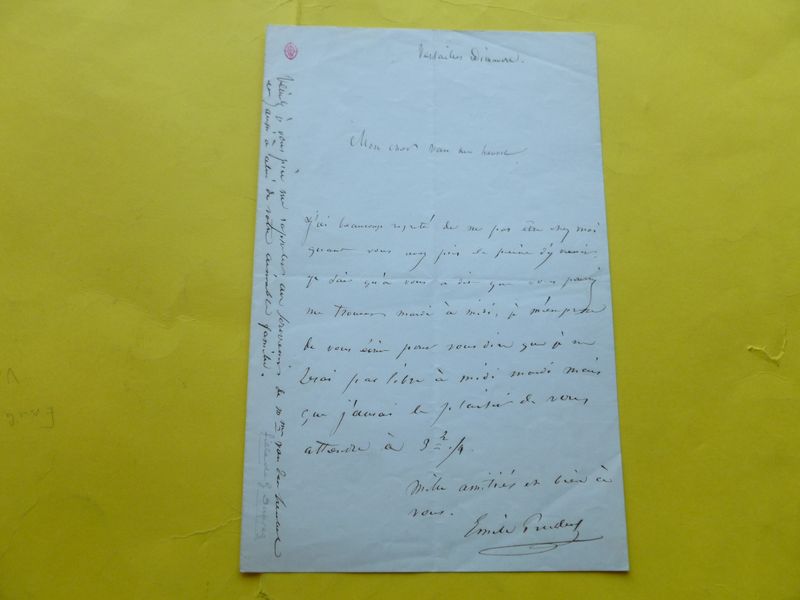 Versailles Dimanche.
Mon cher van den
J'ai beaucoup regretté de ne pas être chez moi
quand vous avez pris la peine d'y venir.
Je sais qu'on vous a dit que vous pouviez
me trouver mardi à midi, je m'empresse
de vous écrire pour vous dire que je ne
serai pas libre à midi mardi mais
que j'aurai le plaisir de vous
attendre à 3 h
Mille amitiés et bien à
vous.
Emile Prudent
Veuillez je vous prie me rappeler au souvenir de Mme van den
et aussi à celui de votre aimable famille.